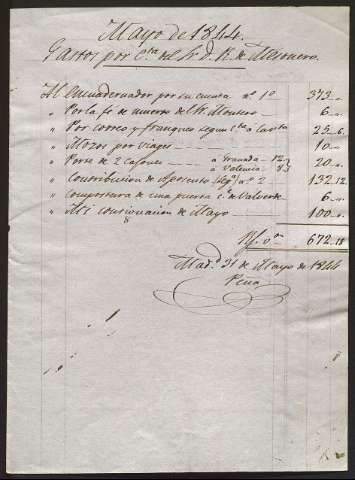 Mayo de 1844.
Gastos por cta del Sr D. R. de Mesonero.
Al encuadernador por su cuenta nº 1º 373 „
„ Por la fé de muerto del Sr. Montero 6 „
„ Por correo y franqueo segun cta a Carta 25 „ 6
„ Mozos por viages 10 „
„ Porte de 2 cajones a Granada 12 a Valencia 8 20 „
„ Contribucion de Aposento nº 2 132 „ 12
„ Compostura de una puerta c. de Valverde 6 „
„ Mi consignacion de Mayo 100 „
Rs. von 672 „ 18
Mad. 31 de Mayo de 1844
Pena